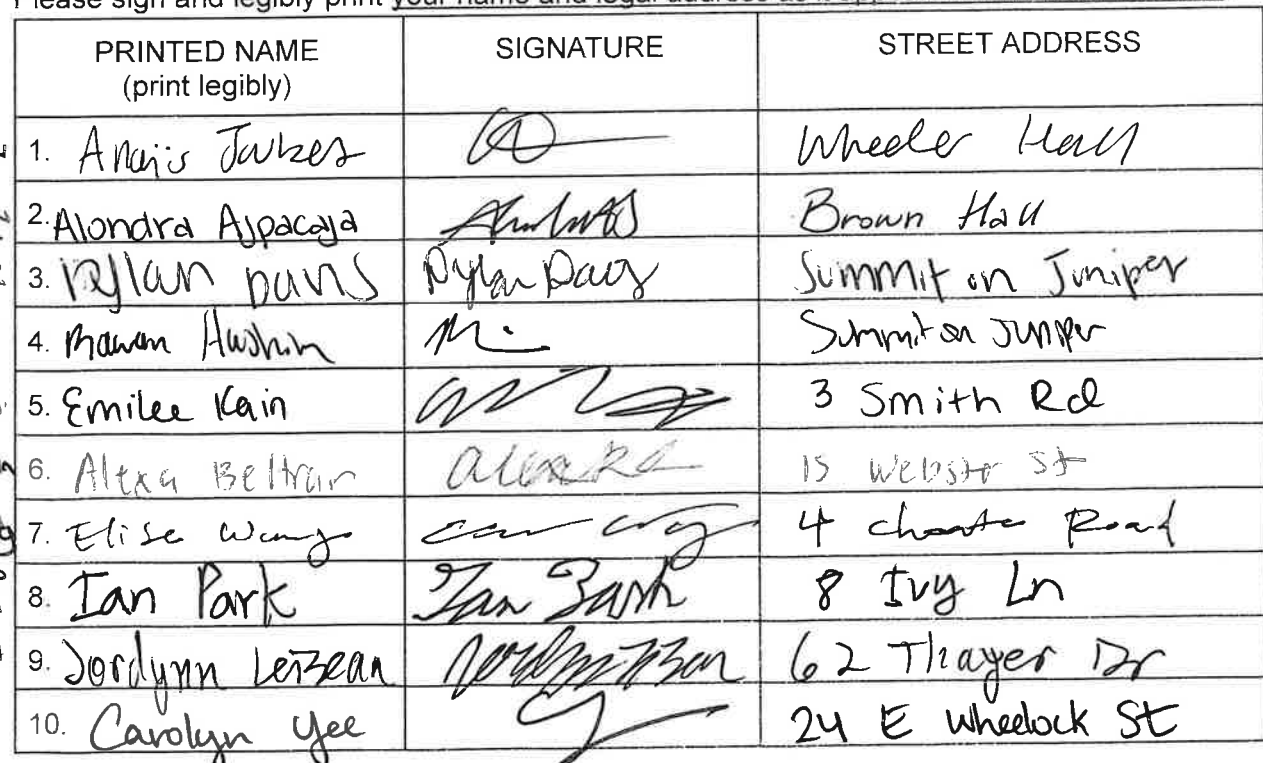 Please sign and legibly print your name and legal address as
PRINTED NAME SIGNATURE STREET ADDRESS
(print legibly)
1. Anais Wheeler Hall
2. Alondra Ajpacaja Brown Hall
3. Dylan Davis Dylan Davis Summit on Juniper
4. Rawan Hashim Summit on Juniper
5. Emilee Kain 3 Smith Rd
6. Alexa Beltran 15 Webster St
7. Elise Wang 4 Choate Road
8. Ian Park Ian Park 8 Ivy Ln
9. Jordynn 62 Thayer Dr
10. Carolyn Yee 24 E Wheelock St